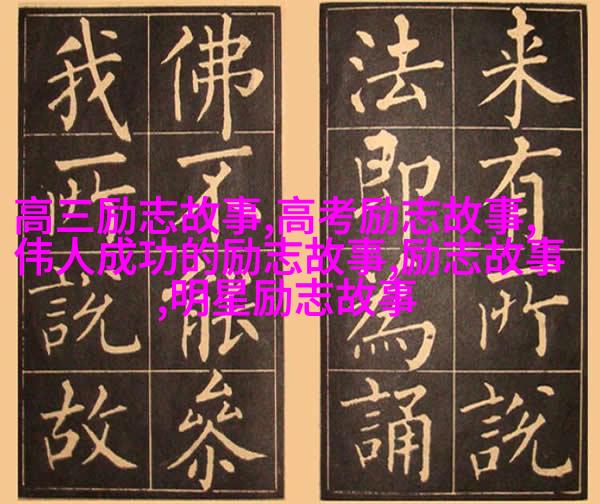 高三励志故事,高考励志故事,
伟人成功的励志故事,励志故事
,明星励志故事
来有所說
法即為誦
佛不能參
我所說故